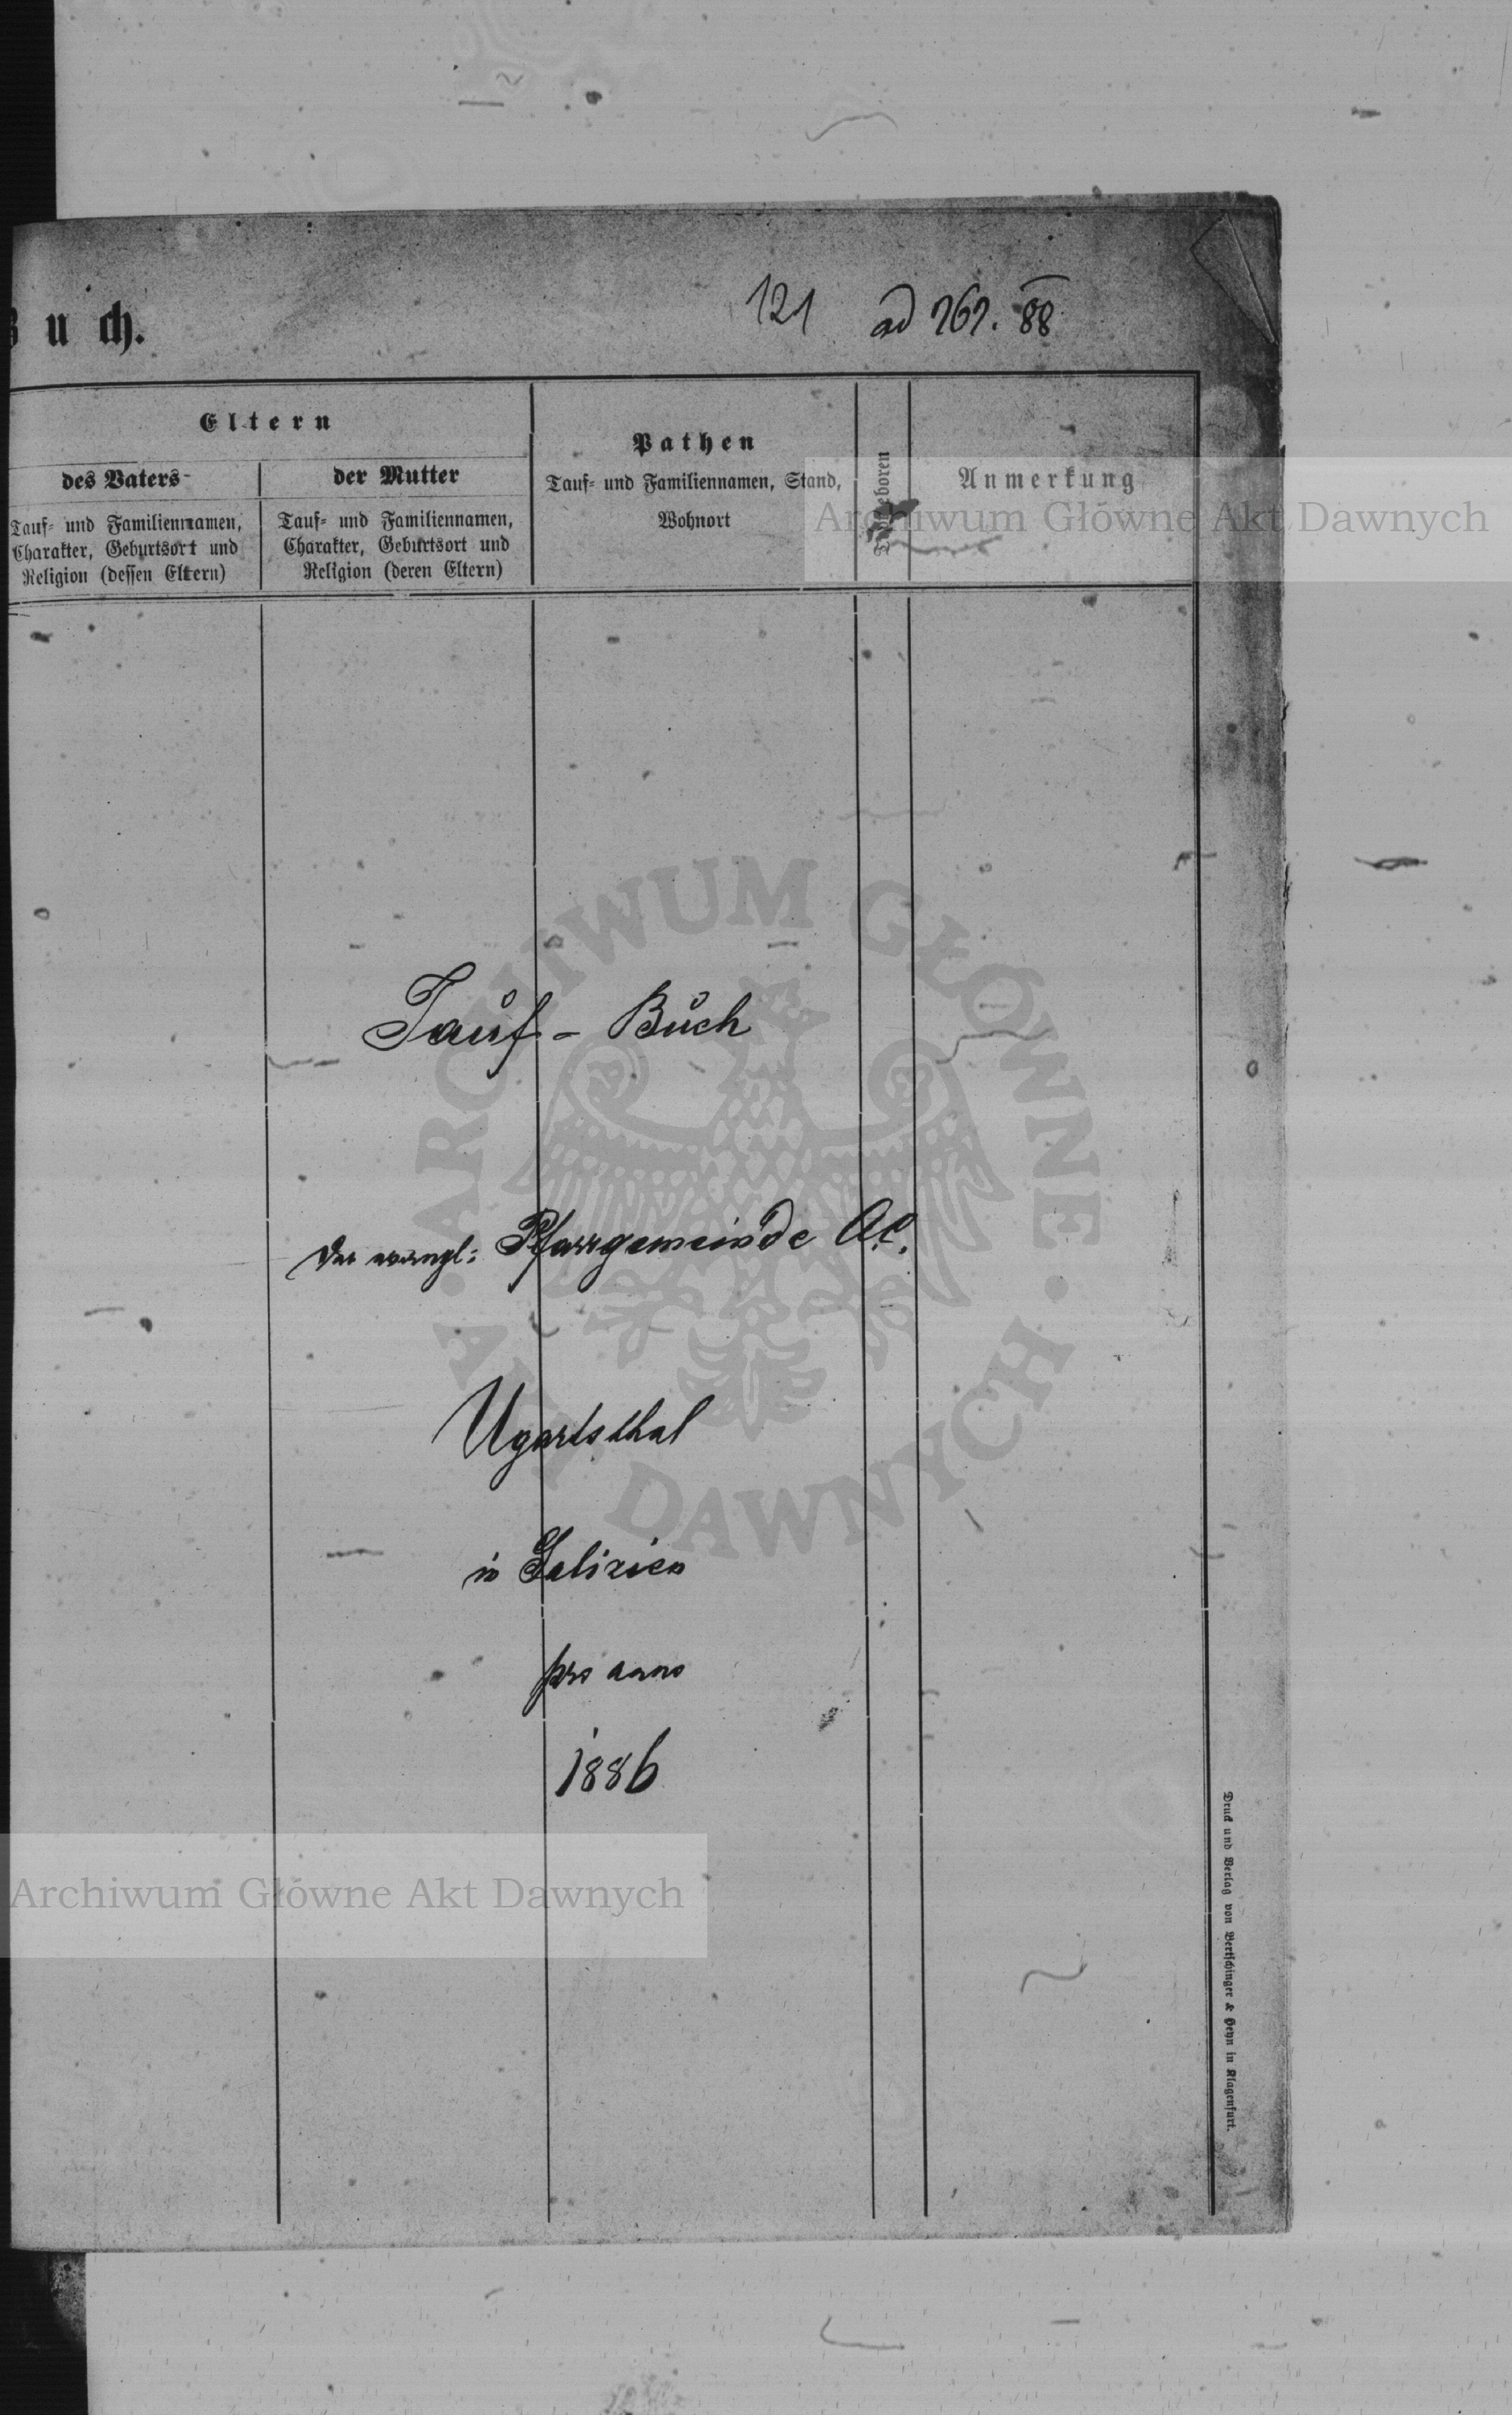 uch.
121 ad 767. 88
Eltern
des Vaters
der Mutter
Tauf- und Familiennamen,
Charakter, Geburtsort und
Religion (dessen Eltern)
Tauf- und Familiennamen,
Charakter, Geburtsort und
Religion (deren Eltern)
Pathen
Tauf- und Familiennamen, Stand,
Wohnort
Anmerkung
Archiwum Główne Akt Dawnych
Tauf - Buch
ARCHIWUM GŁÓWNE
AKT DAWNYCH
der evangl: Pfarrgemeinde A.C.
Ugartsthal
in Galizien
pro anno
1886
Archiwum Główne Akt Dawnych
Druck und Verlag von Bertschinger & Heyn in Klagenfurt.